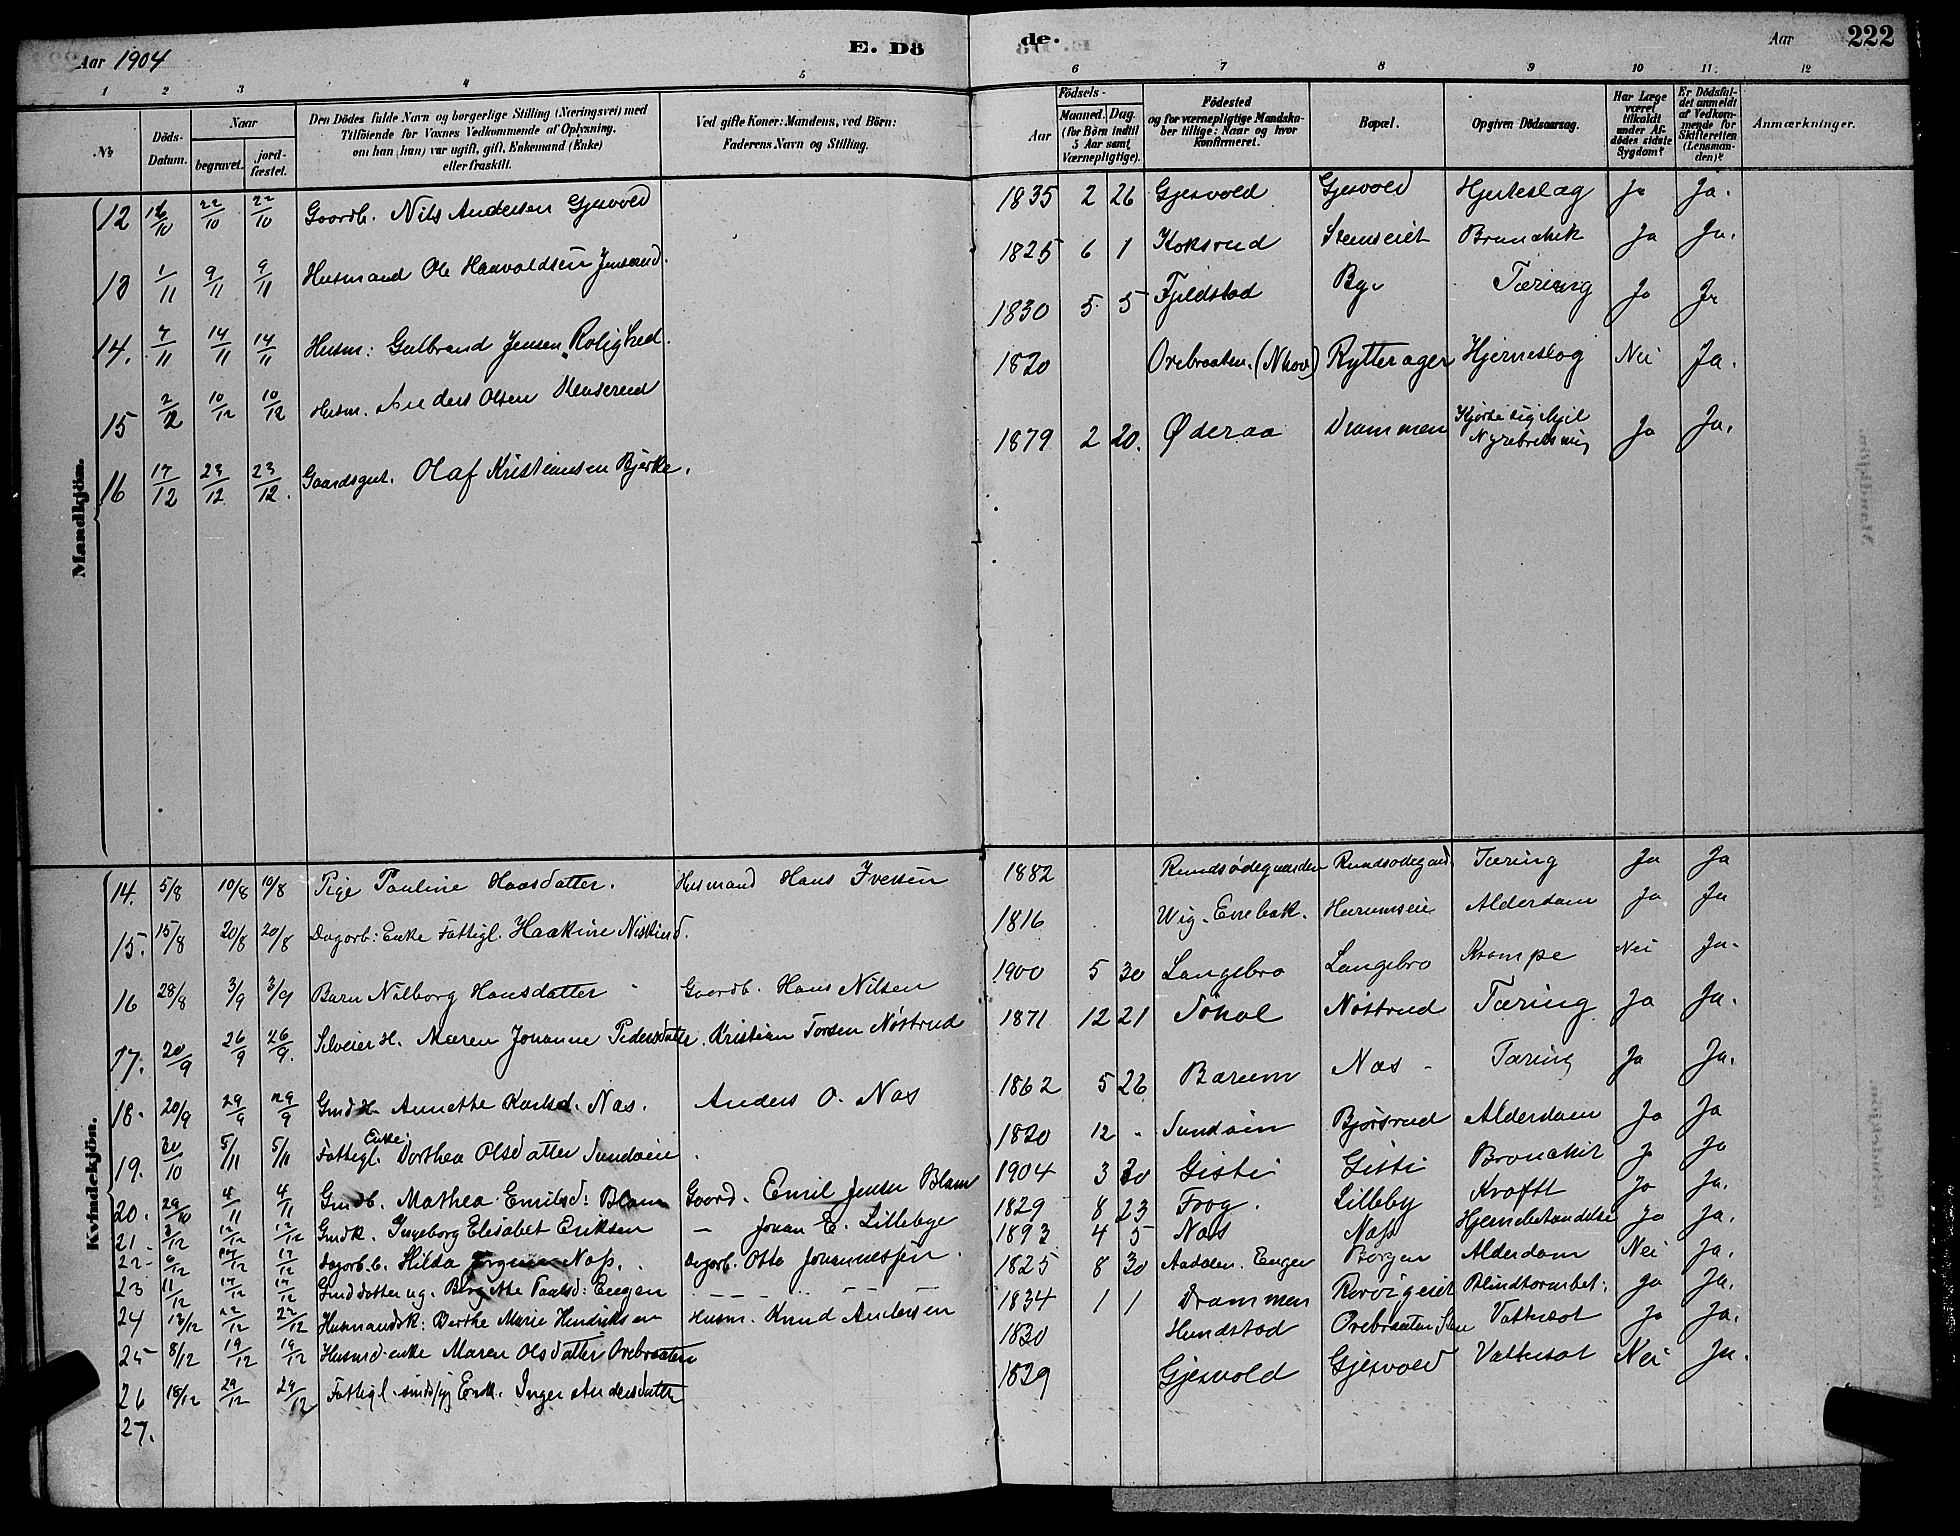 Aar 1904
E. Dö
de.
Aar
222
1 2 3 4 5 6 7 8 9 10 11. 12
№
Döds-Datum.
Naar
begravet.
jord-fæstet.
Den Dödes fulde Navn og borgerlige Stilling (Næringsvei) med
Tilföiende for Voxnes Vedkommende af Oplysning,
om han (hun) var ugift, gift, Enkemand (Enke)
eller fraskilt.
Ved gifte Koner: Mandens, ved Börn:
Faderens Navn og Stilling.
Födsels-
Aar
Maaned. Dag.
(for Börn indtil
5 Aar samt
Værnepligtige).
Födested
og for værnepligtige Mandska-
ber tillige: Naar og hvor
konfirmeret.
Bopæl.
Opgiven Dödsaarsag.
Har Læge
været
tilkaldt
under Af-
dödes sidste
Sygdom?
Er Dödsfal-
det anmeldt
af Vedkom-
mende for
Skifteretten
(Lensman-
den)?
Anmærkninger.
Mandkjön.
12 16/10 22/10 22/10 Gaardb. Nils Andersen Gjesvold 1835 2 26 Gjesvold Gjesvold Hjerteslag Ja Ja.
13 1/11 9/11 9/11 Husmand Ole Haavaldsen 1825 6 1 Koksrud Stenseiet Bronchit Ja Ja.
14. 7/11 14/11 14/11 Husm: Gulbrand Jensen Rolighed. 1830 5 5 Fjeldstad By Tæring Ja Ja
15 2/12 10/12 10/12 Husm. Anders Olsen 1820 Orebraaten. Rytterager Hjerneslag Nei Ja.
16 17/12 23/12 23/12. Gaardsgut. Olaf Kristiansen Bjerke. 1879 2 20. Øderaa Drammen Ja Ja.
Kvindekjön.
14. 5/8 10/8 10/8 Pige Pauline Hansdatter. Husmand Hans Iversen 1882 Rundsødegaarden Rundsødegaard Tæring Ja Ja
15. 15/8 20/8 20/8 Dagarb: Enke Fattigl. Haakine 1816 Wig. Enebak. Hurumseie Alderdom Ja Ja
16 28/8 3/9 3/9 Barn Nilborg Hansdatter Gaardb. Hans Nilsen 1900 5 30 Langebro Langebro Krampe Nei Ja.
17. 20/9 26/9 26/9. Selveier H. Maren Johanne Pedersdatter. Kristian Torsen Nøstrud 1871 12 21 Søhol Nøstrud Tæring Ja Ja.
18. 20/9 29/9 29/9 Gmd H. Annette Karlsd. Næs. Anders O. Næs 1862 5 26 Bærum Næs Tæring Ja Ja.
19. 30/10 5/11 5/11 Fattigl. Enke Dorthea Olsdatter Sundøien 1820 12 Sundøien Bjørsrud Alderdom Ja Ja
20. 29/10 4/11 4/11 Gmdb. Mathea Emilsd: Blam Gaard. Emil Jensen Blam 1904 3 30 Gisti Gisti Bronchit Ja Ja
21 3/12 12/12 12/12 Gmdk. Ingeborg Elisabet Eriksen — Johan E. Lillebye 1829 8 23 Frog. Lilleby Kræft Ja Ja.
22 12/12 Dagarb. b. Hilda Næs. Dagarb. Otto Johannessen. 1893 4 5 Næs Næs Hjernebetændelse Ja Ja.
23 11/12 17/12 17/12 Gmddatter ug. Birgitte Paalsd: Engen 1825 8 30 Aadalen. Enger Borgen Alderdom Nei Ja.
24 13/12 22/12 22/12 Husmandsk: Berthe Marie Henriksen Husm. Knud Andersen 1834 1 1 Drammen Ja Ja.
25 8/12 19/12 19/12 Husmd enke Maren Olsdatter Orebraaten 1830 Hundstad Orebraaten Vattersot Ja Ja.
26 18/12 29/12 29/12 Fattigl. Enk. Inger Andersdatter 1829 Gjesvold Gjesvold Vattersot Nei Ja.
27.